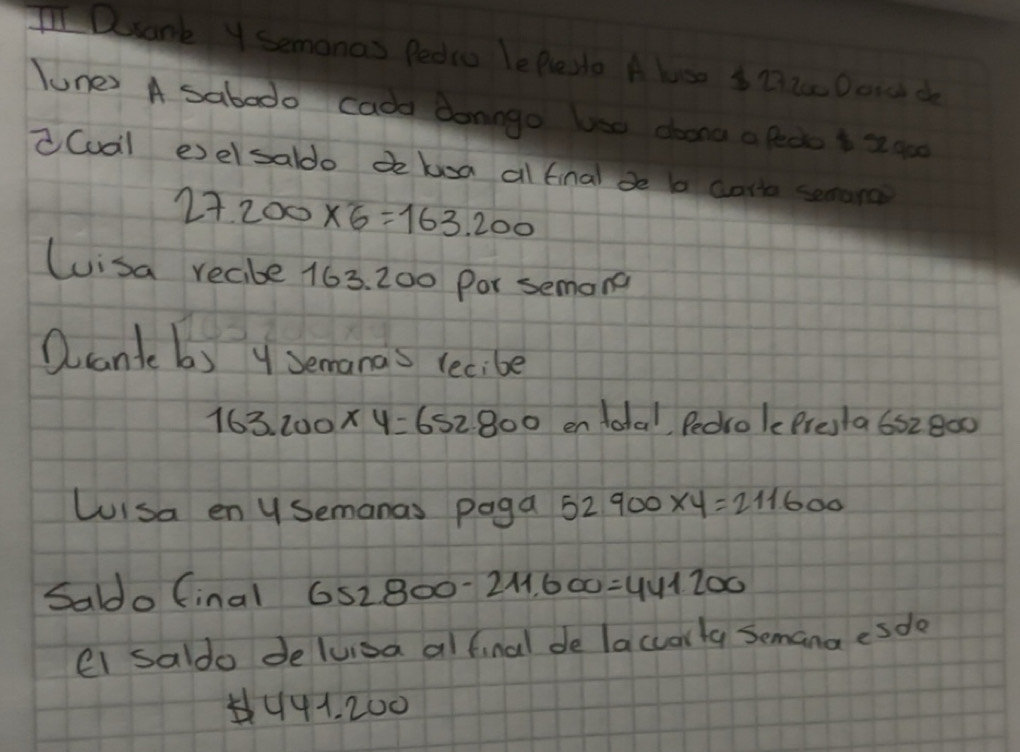 III Durante 4 semanas Pedro le Presto A luisa $ 27200 Diario de
lunes A Sabado cada domingo luisa abona a Pedro $ 52900
¿Cuál es el saldo de luisa al final de la cuarta semana
27.200 x 6 = 163.200
Luisa recibe 163.200 Por semana
Durante las 4 semanas recibe
163.200 x 4 = 652.800 en total. Pedro le Presta 652 800
Luisa en 4 semanas paga 52 900 x 4 = 211600
Saldo final 652800 - 211.600 = 441200
el saldo de luisa al final de la cuarta semana es de
$ 441.200